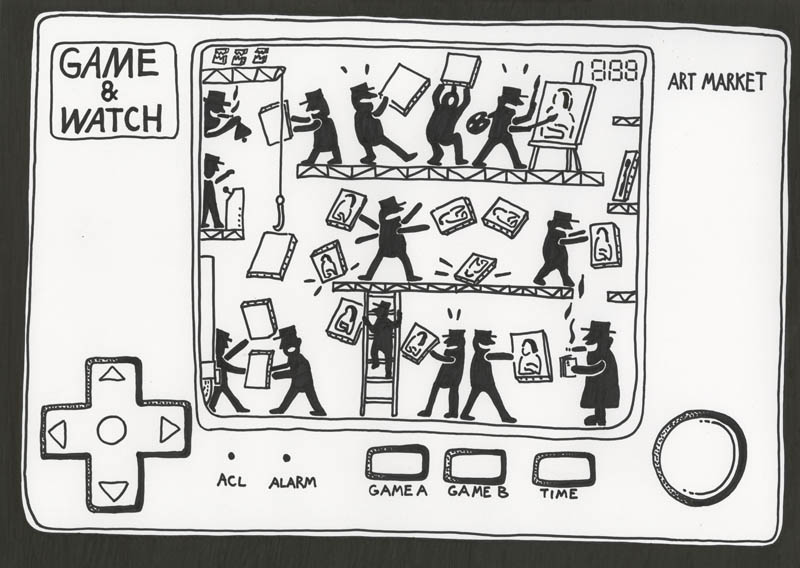 GAME
&
WATCH
888
ART MARKET
ACL
ALARM
GAME A
GAME B
TIME